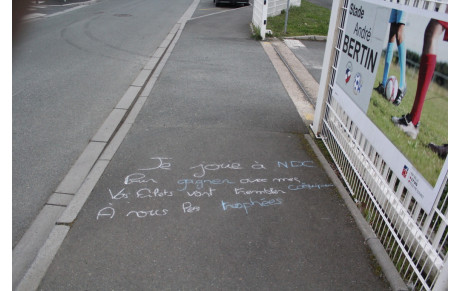 Stade
André
BERTIN
Je joue à NDC
Pour gagner avec mes
Vos filets vont trembler Collègues
À nous les trophées